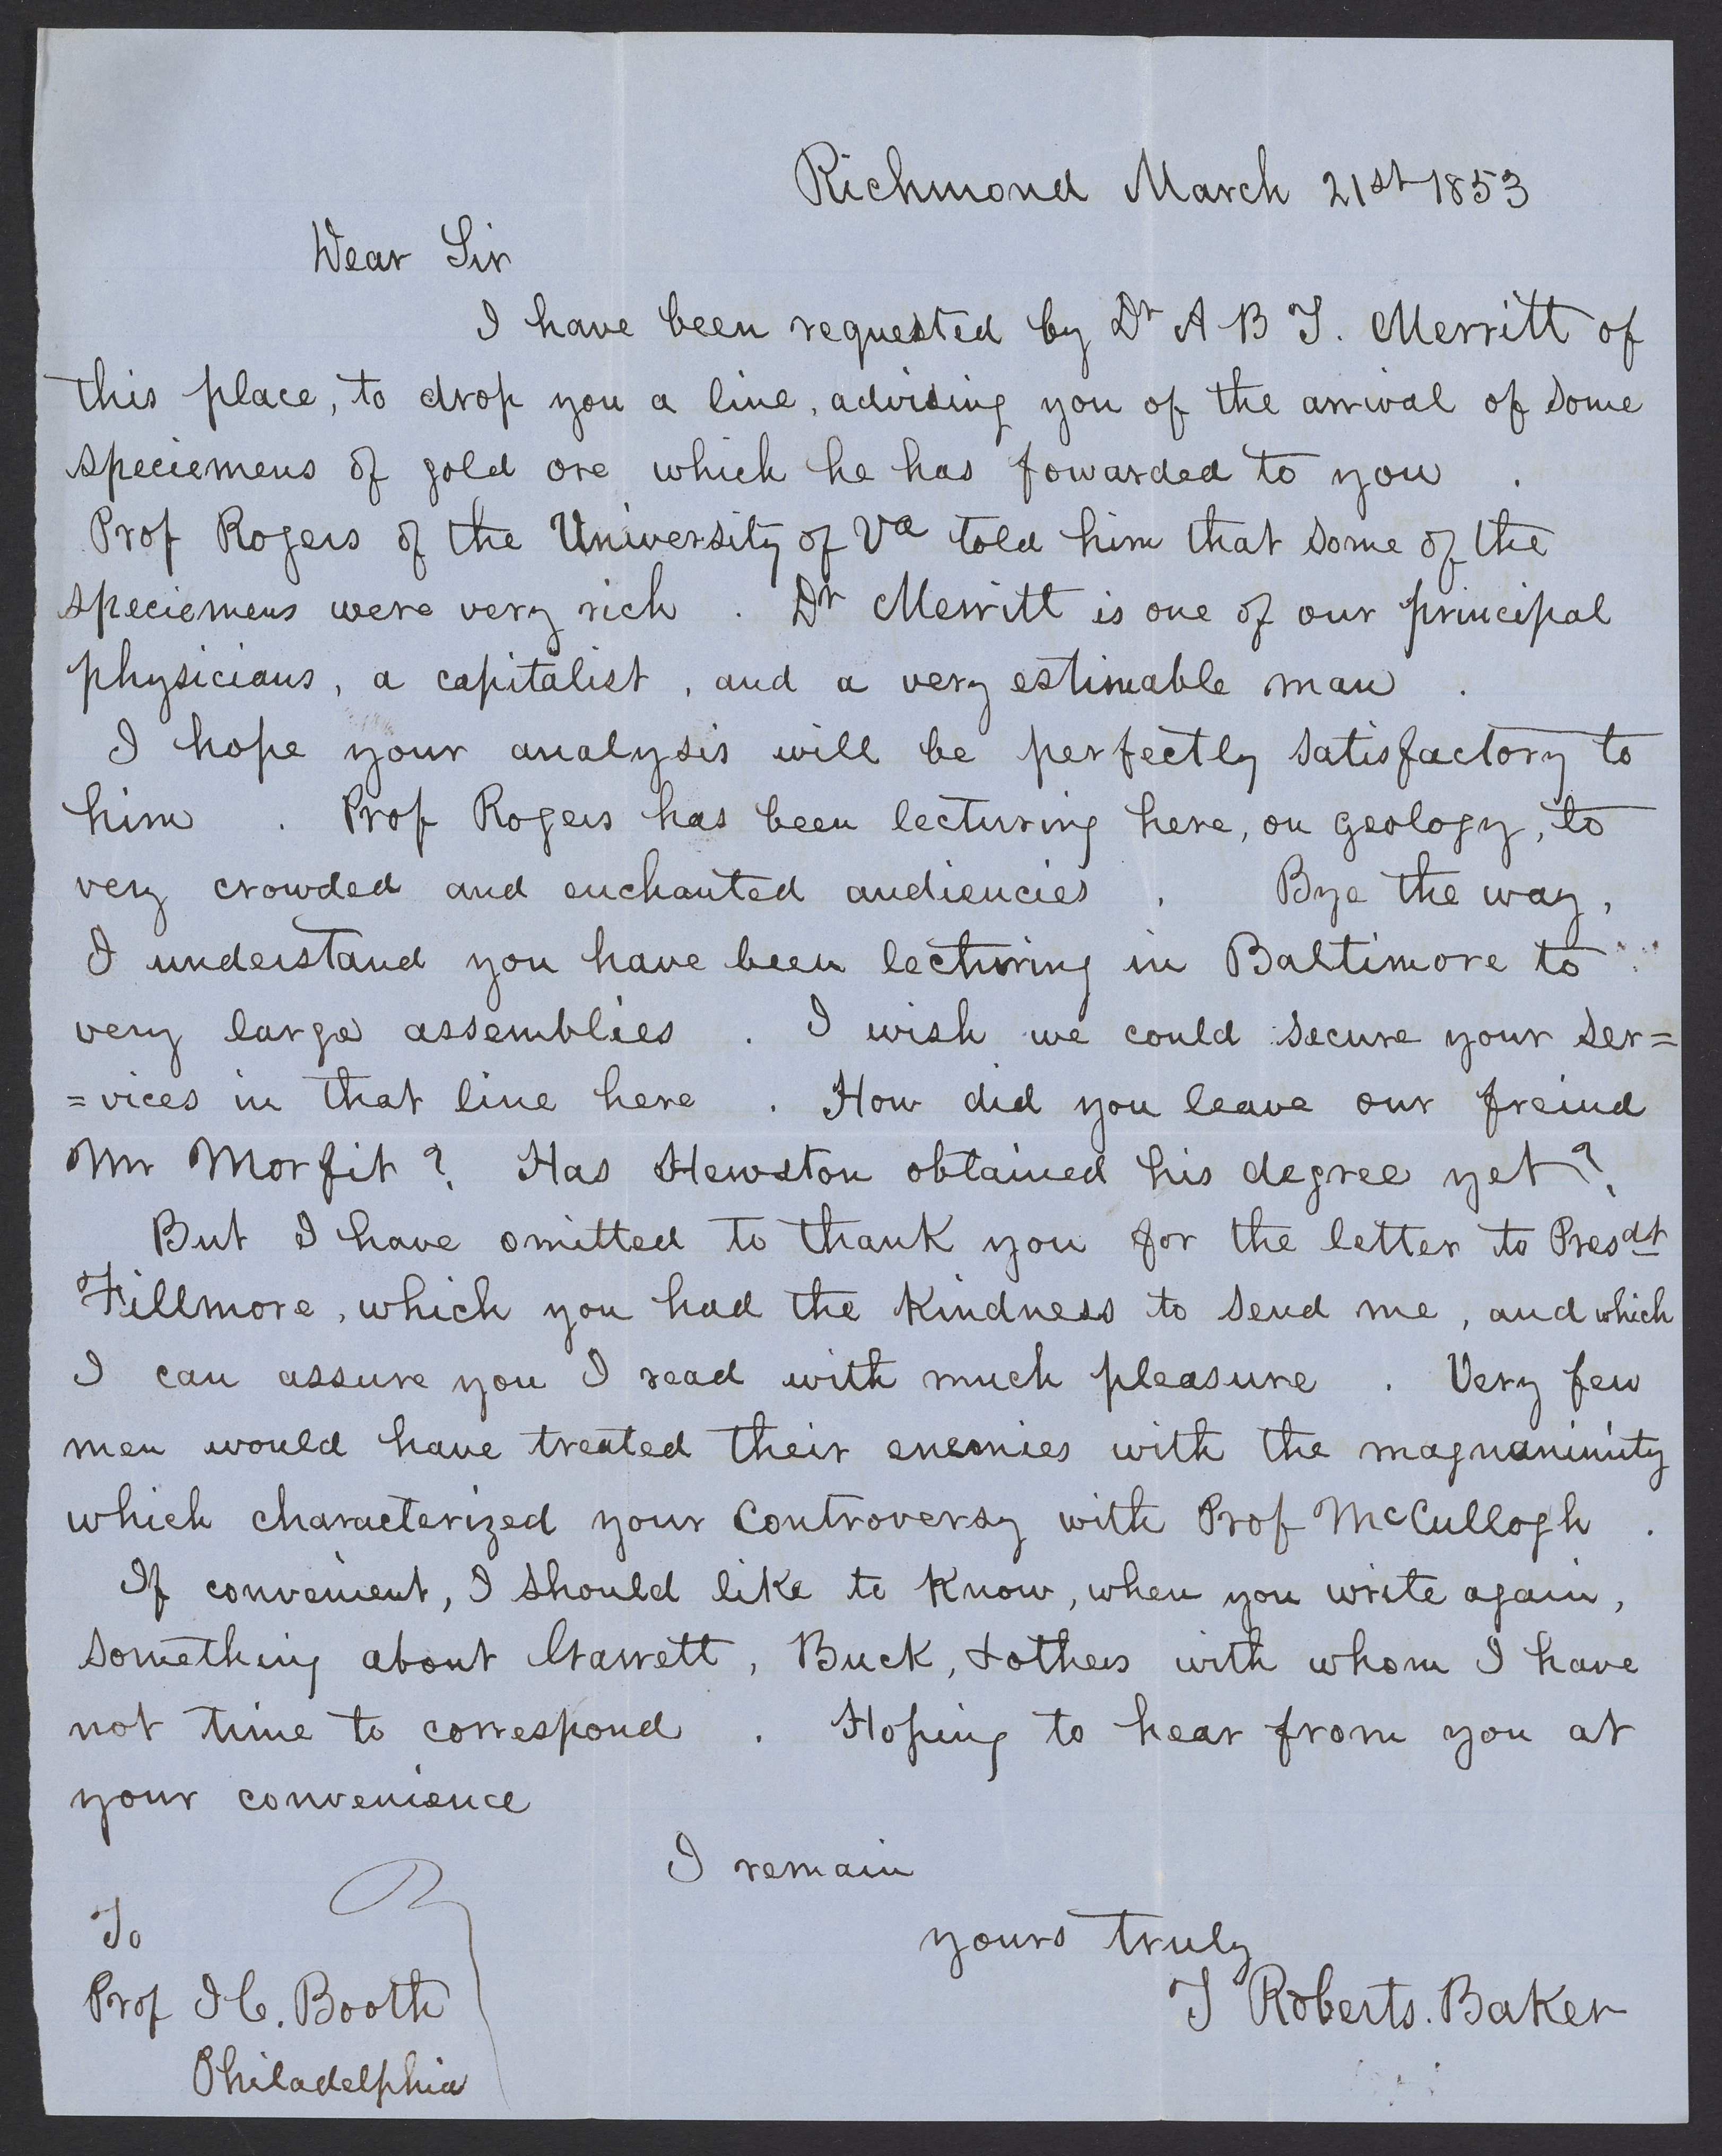 Richmond March 21st 1853
Dear Sir
I have been requested by Dr A B I. Merritt of
this place, to drop you a line, advising you of the arrival of some
speciemens of gold ore which he has fowarded to you .
Prof Rogers of the University of Va told him that some of the
speciemens were very rich . Dr Merritt is one of our principal
physicians, a capitalist, and a very estimable man .
I hope your analysis will be perfectly satisfactory to
him . Prof Rogers has been lecturing here, on geology, to
very crowded and enchanted audiencies . Bye the way,
I understand you have been lecturing in Baltimore to
very large assemblies . I wish we could secure your ser=
=vices in that line here . How did you leave our freind
Mr Morfit ? Has Hewston obtained his degree yet ?
But I have omitted to thank you for the letter to Presdt
Fillmore, which you had the kindness to send me, and which
I can assure you I read with much pleasure . Very few
men would have treated their enemies with the magnanimity
which characterized your controversy with Prof McCullogh .
If convenient, I should like to know, when you write again,
something about Garrett, Buck, & others with whom I have
not time to correspond . Hoping to hear from you at
your convenience
I remain
yours truly
T Roberts. Baker
To
Prof J C. Booth
Philadelphia